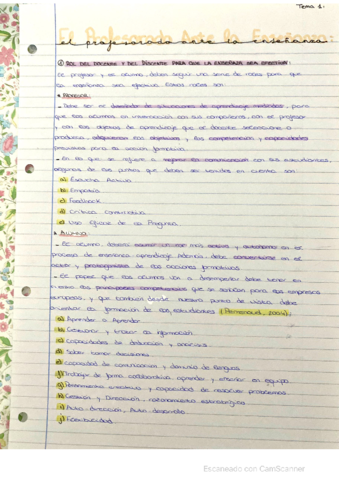 Tema 1.
El Profesorado Ante la Enseñanza:
① ROL DEL DOCENTE Y DEL DISCENTE PARA QUE LA ENSEÑANZA SEA EFECTIVA:
El profesor y el alumno deben seguir una serie de roles para que
la enseñanza sea efectiva. Estos roles son:
• PROFESOR:
- Debe ser el diseñador de situaciones de aprendizaje mediadas, para
que los alumnos en interacción con sus compañeros, con el profesor
y con los objetos de aprendizaje que el docente seleccione o
produzca adquieran los objetivos y las competencias y capacidades
previstas para la acción formativa.
- En lo que se refiere a mejorar la comunicación con sus estudiantes,
algunos de los puntos que deben ser tenidos en cuenta son:
a) Escucha Activa
b) Empatía
c) Feedback
d) Crítica Constructiva
e) Uso Eficaz de las Preguntas
• ALUMNO:
- El alumno deberá más activo y autónomo en el
proceso de enseñanza aprendizaje. Además debe convertirse en el
actor y protagonista de las acciones formativas.
- El papel que los alumnos van a desempeñar debe tener en
cuenta las principales competencias que se solicitan para las empresas
europeas, y que también desde nuestro punto de vista debe
orientar la formación de los estudiantes (Perrenoud, 2004):
a) Aprender a Aprender
b) Gestionar y tratar la información
c) Capacidades de deducción y analisis
d) Saber tomar decisiones
e) Capacidad de comunicación y dominio de lenguas
f) Trabajar de forma colaborativa, aprender y enseñar en equipo
g) Pensamiento creativo y capacidad de resolver problemas
h) Gestión y Dirección, razonamiento estratégico
i) Auto-dirección, Auto-desarrollo
j) Flexibilidad
Escaneado con CamScanner